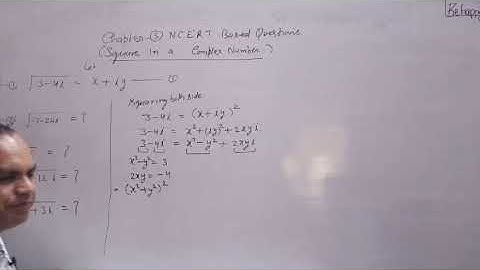 Chapter-③ NCERT Based Questions
(Square in a Complex Number)
① √3-4i = x + iy —— ①
Squaring both side
3-4i = (x+iy)²
3-4i = x²+(iy)²+2xyi
3-4i = x²-y²+2xyi
x²-y² = 3
2xy = -4
(x²+y²)²
√-7-24i = ?
= ?
= ?
+3i = ?